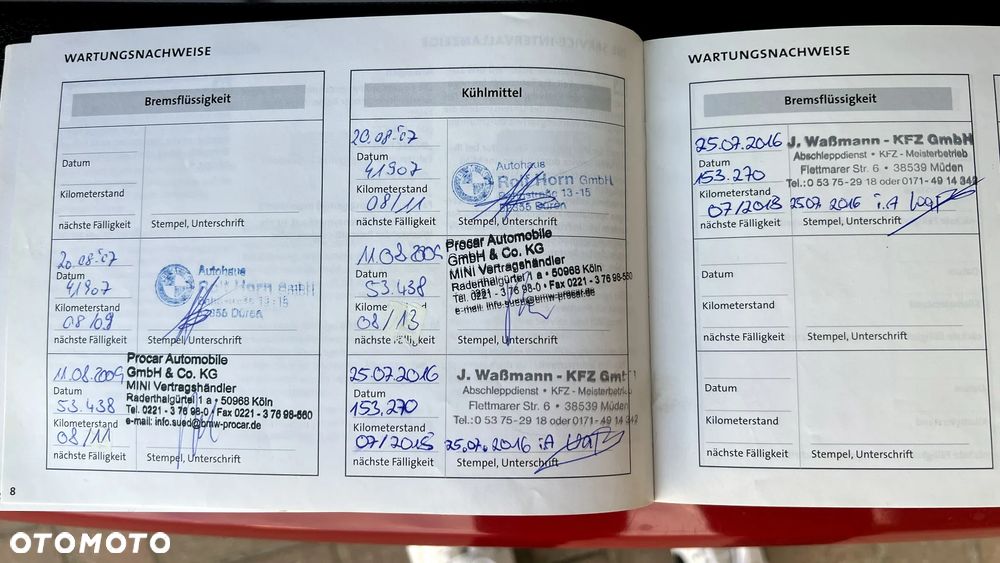 WARTUNGSNACHWEISE
Bremsflüssigkeit
Datum
Kilometerstand
nächste Fälligkeit
Stempel, Unterschrift
20.08.07
Datum
41907
Kilometerstand
08/09
nächste Fälligkeit
Autohaus
Rolf Horn GmbH
13-15
Düren
Stempel, Unterschrift
11.08.2009
Datum
53.438
Kilometerstand
08/11
nächste Fälligkeit
Procar Automobile
GmbH & Co. KG
MINI Vertragshändler
Raderthalgürtel 1 a • 50968 Köln
Tel. 0221 - 3 76 98-0 / Fax 0221 - 3 76 98-560
e-mail: info.sued@bmw-procar.de
Stempel, Unterschrift
8
Kühlmittel
20.08.07
Datum
41907
Kilometerstand
08/11
nächste Fälligkeit
Autohaus
Rolf Horn GmbH
13-15
Düren
Stempel, Unterschrift
11.08.2009
Datum
53.438
Kilome
08/13
nächste
Procar Automobile
GmbH & Co. KG
MINI Vertragshändler
Raderthalgürtel 1 a • 50968 Köln
Tel. 0221 - 3 76 98-0 • Fax 0221 - 3 76 98-560
e-mail: info.sued@bmw-procar.de
Stempel, Unterschrift
25.07.2016
Datum
153.270
Kilometerstand
07/2018
nächste Fälligkeit
J. Waßmann - KFZ Gm
Abschleppdienst • KFZ - Meisterbetrieb
Flettmarer Str. 6 • 38539 Müden
Tel.: 0 53 75-29 18 oder 0171-49 14 342
25.07.2016 i.A
Stempel, Unterschrift
WARTUNGSNACHWEISE
Bremsflüssigkeit
25.07.2016
Datum
153.270
Kilometerstand
07/2018
nächste Fälligkeit
J. Waßmann - KFZ GmbH
Abschleppdienst • KFZ - Meisterbetrieb
Flettmarer Str. 6 • 38539 Müden
Tel.: 0 53 75-29 18 oder 0171-49 14 342
25.07 2016 i.A
Stempel, Unterschrift
Datum
Kilometerstand
nächste Fälligkeit
Stempel, Unterschrift
Datum
Kilometerstand
nächste Fälligkeit
Stempel, Unterschrift
OTOMOTO